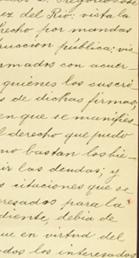 Gregorio
ez del Rio; vista la
recho por mandas
truccion pública; vis
rmados con acuer-
quiénes los suscri-
s de dichas firmas,
en que se manifies-
l derecho que pudo
no bastan los bie-
ir las deudas, y
s situaciones que se
eresados para la
diente, debia de
ue en virtud del
odos los interesados